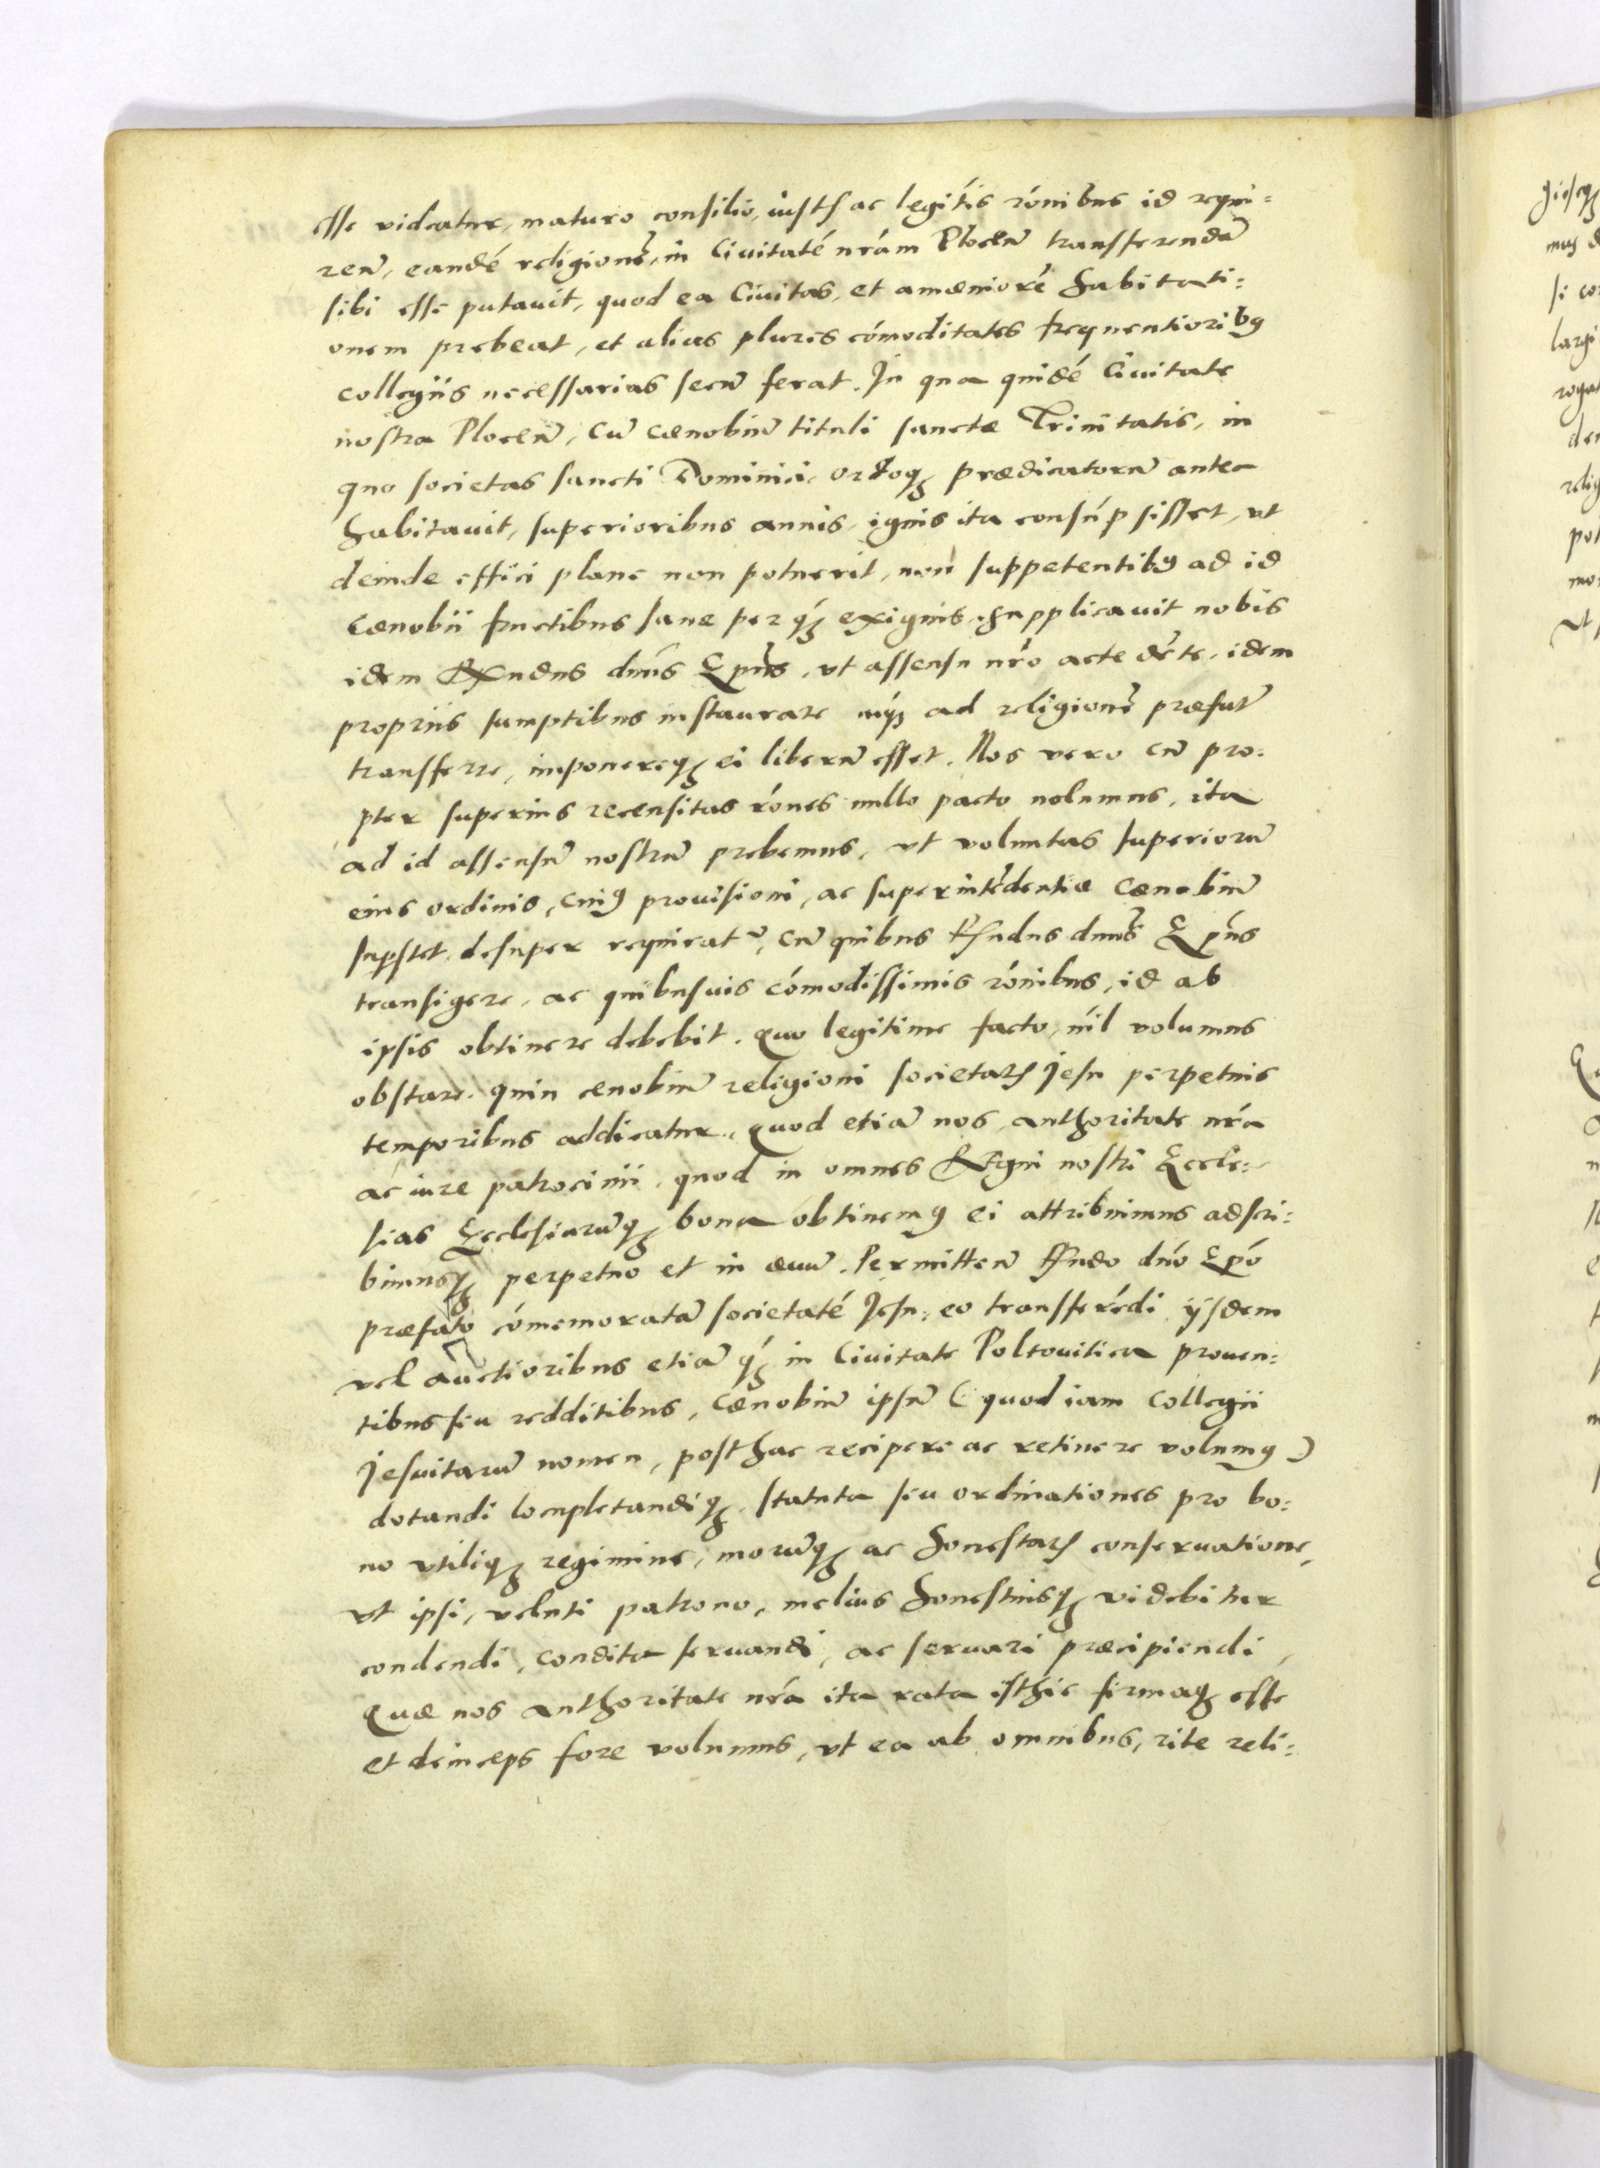 esse videatur, maturo consilio, iustis ac legitis rónibus id requi:
ren̄, eandé religionē, in Ciuitaté nrám Plocen̄ transferendā
sibi esse putauit, quod ea Ciuitas, et amæniorē habitati:
onem prebeat, et alias plures cómoditates frequentiorib9
collegiis necessarias secū ferat. In qua quidé Ciuitate
nostra Plocen̄, cū cænobiū tituli sanctæ Trinitatis, in
quo societas sancti Dominici, ordoq3 prædicatorū antea
habitauit, superioribus annis, ignis ita consúpsisset, vt
deinde effici plane non potuerit, non suppetentib9 ad id
cænobii fructibus sane per q́3 exiguis. supplicauit nobis
idem Rndus dnús Epús, vt assensu nró accedēte, idem
propriis sumptibus instaurare ad religionē præfat̄
transferre, imponereq3 ei liberū esset. Nos vero cū pro:
pter superius recensitas rónes nullo pacto nolumus, ita
ad id assensū nostrū prebemus, vt voluntas superiorū
eius ordinis, cui9 prouisioni, ac superintēdentiæ cænobiū
supstet, desuper requiratr, cū quibus Rndus dnús Epús
transigere, ac quibusuis cómodissimis rónibus, id ab
ipsis obtinere debebit. Quo legitime facto, níl volumus
obstare, quin cænobiū religioni societatis Jesu perpetuis
temporibus addicatur, quod etiā nos, authoritate nrá
ac iure patrocinii, quod in omnes Regni nostri Eccle:
sias Ecclesiarūq3 bona obtinem9 ei attribuimus adscri:
bimusq3 perpetuo et in æuū. Permitten̄ Rndo dnó Epó
præfato cómemoratā societaté Jesu, eo transferédi, ijsdem
vel auctioribus etiā q́3 in Ciuitate Poltouitien prouen:
tibus seu redditibus, cænobiū ipsū (: quod iam Collegii
Jesuitarū nomen, posthac recipere ac retinere volum9 )
dotandi locupletandiq3, statuta seu ordinationes pro bo:
no vtiliq3 regimine, morūq3 ac honestatis conseruatione,
vt ipsi, veluti patrono, melius honestiusq3 videbitur
condendi, condita seruandi, ac seruari præcipiendi,
Quæ nos authoritate nrá ita rata isthic firmaq3 esse
et deinceps fore volumus, vt ea ab omnibus, rite reli: